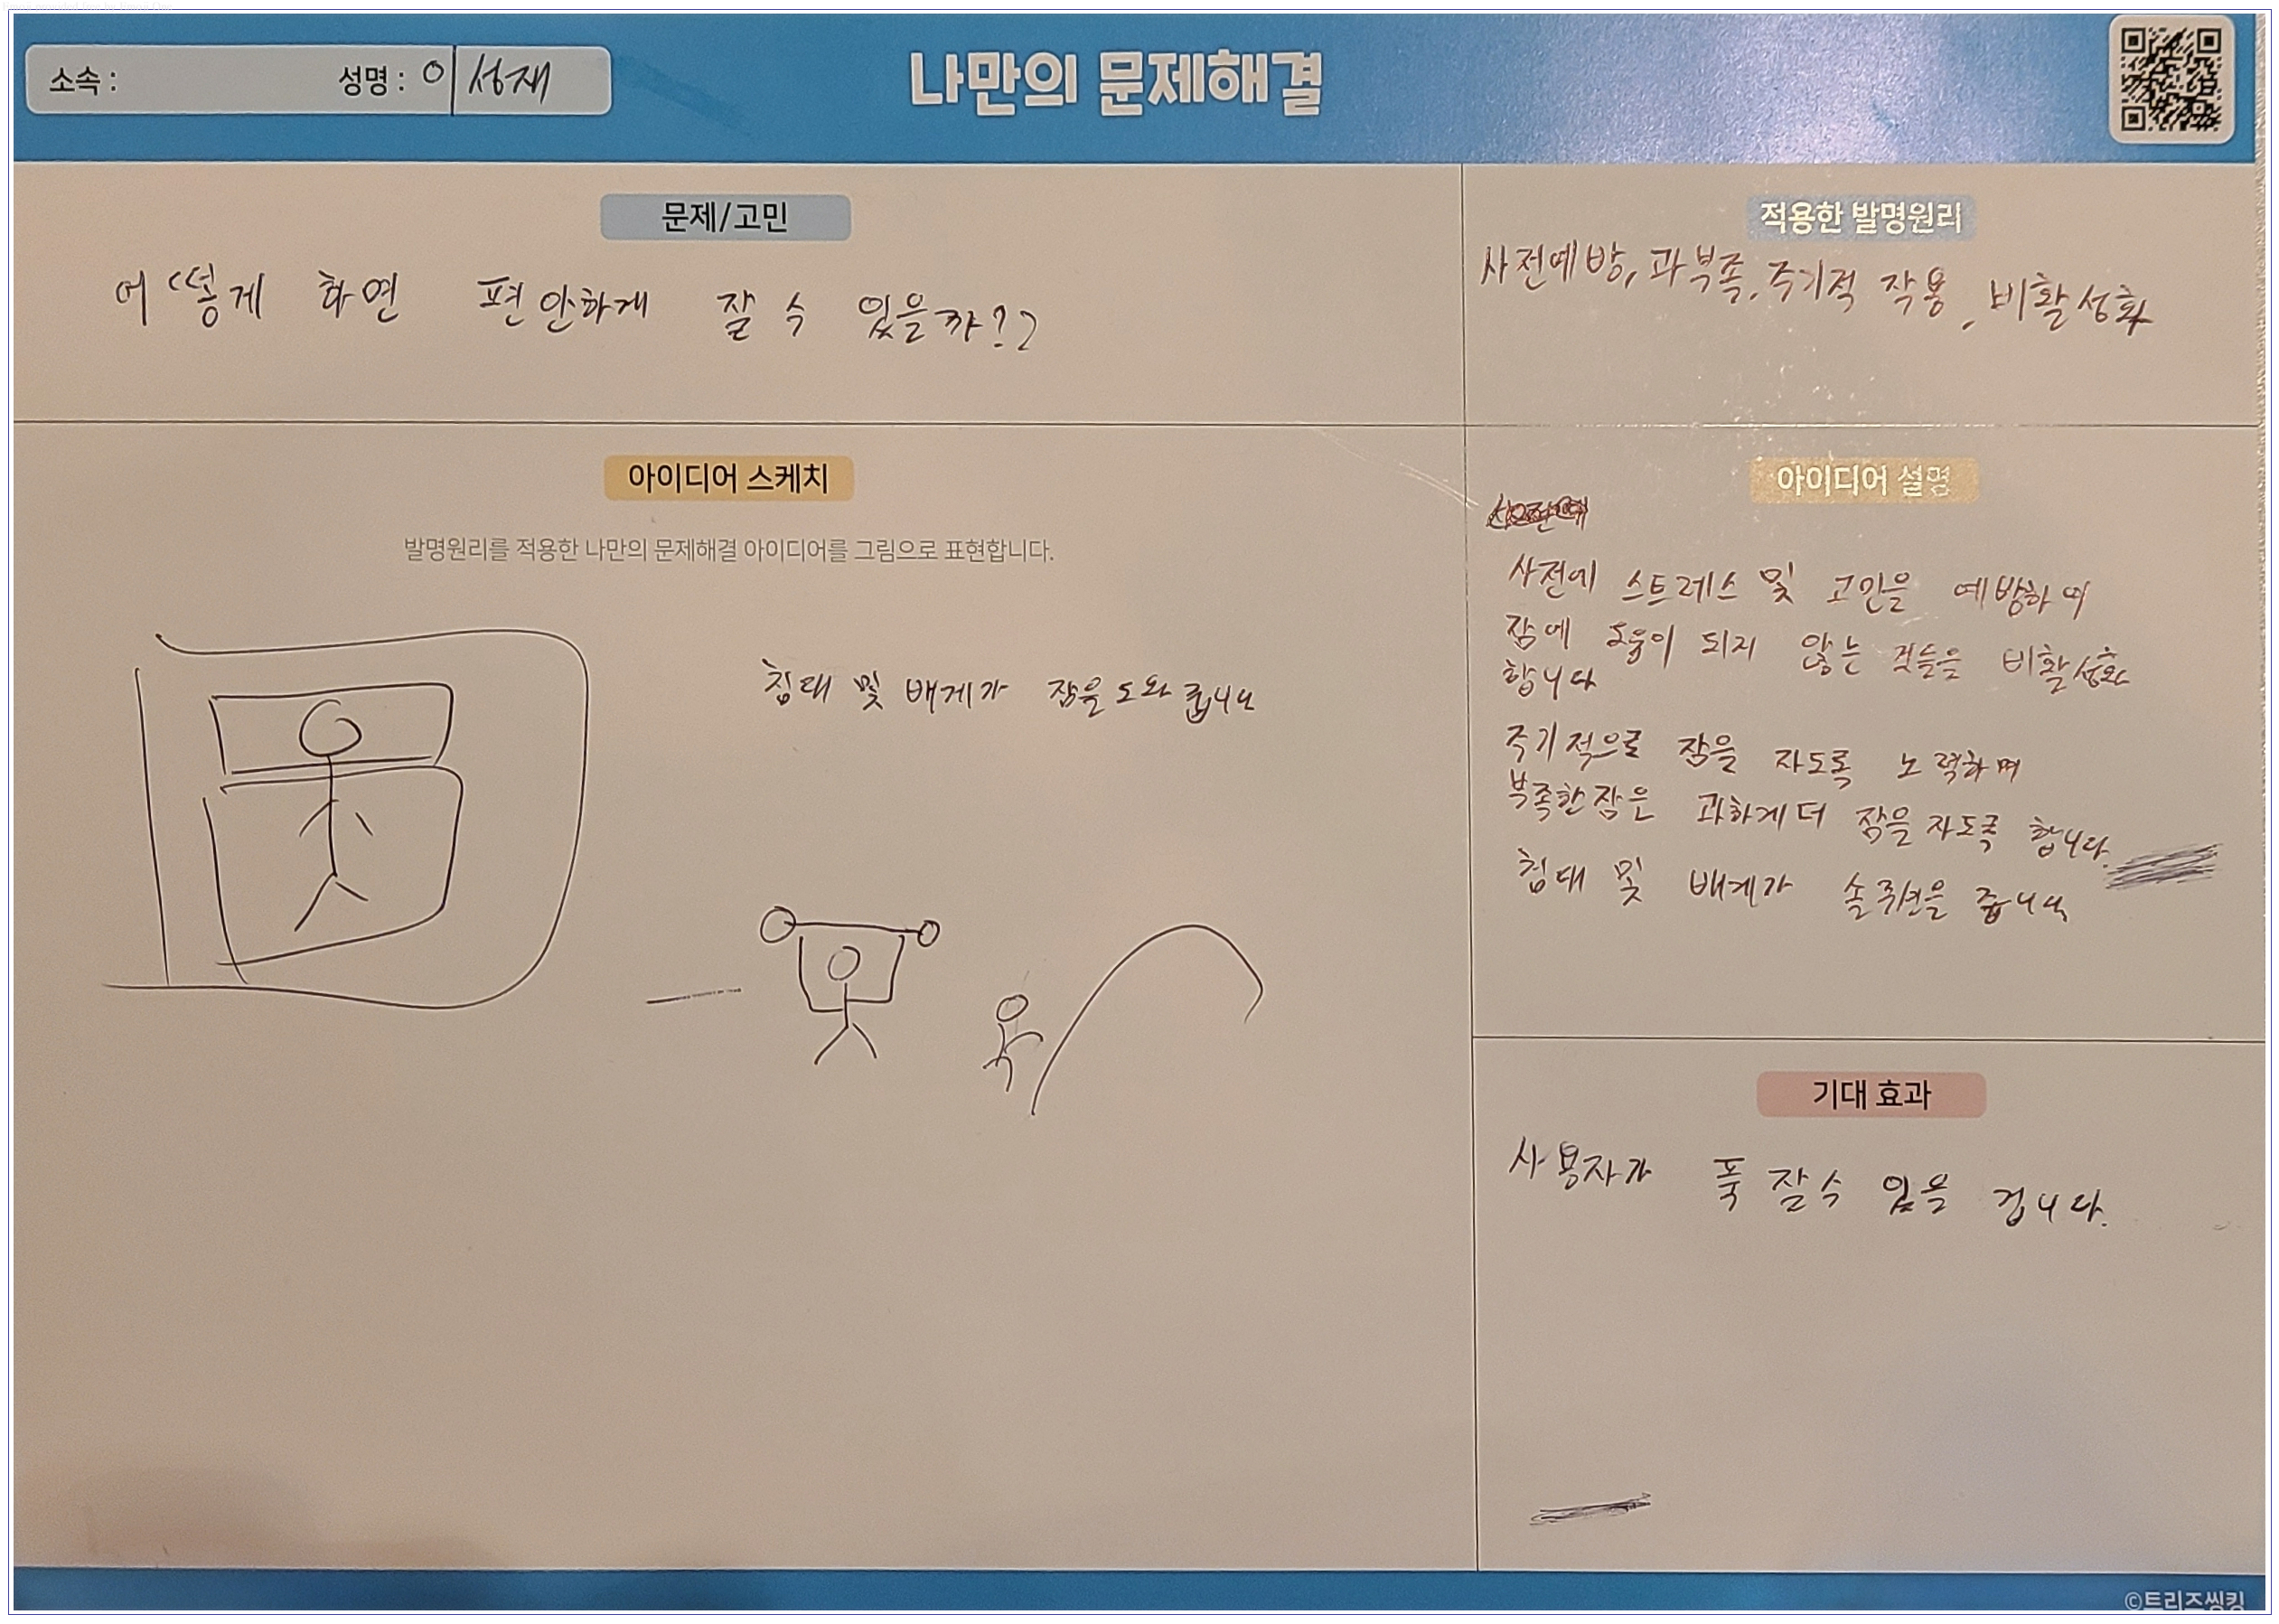 소속 :
성명 : 이성재
나만의 문제해결
문제/고민
어떻게 하면 편안하게 잘 수 있을까??
적용한 발명원리
사전예방, 과부족, 주기적 작용, 비활성화
아이디어 스케치
발명원리를 적용한 나만의 문제해결 아이디어를 그림으로 표현합니다.
침대 및 배게가 잠을 도와줍니다
아이디어 설명
사전에 스트레스 및 고민을 예방하며
잠에 도움이 되지 않는 것들을 비활성화
합니다
주기적으로 잠을 자도록 노력하며
부족한 잠은 과하게 더 잠을 자도록 합니다.
침대 및 배게가 솔루션을 줍니다
기대 효과
사용자가 푹 잘수 있을 겁니다.
©트리즈씽킹